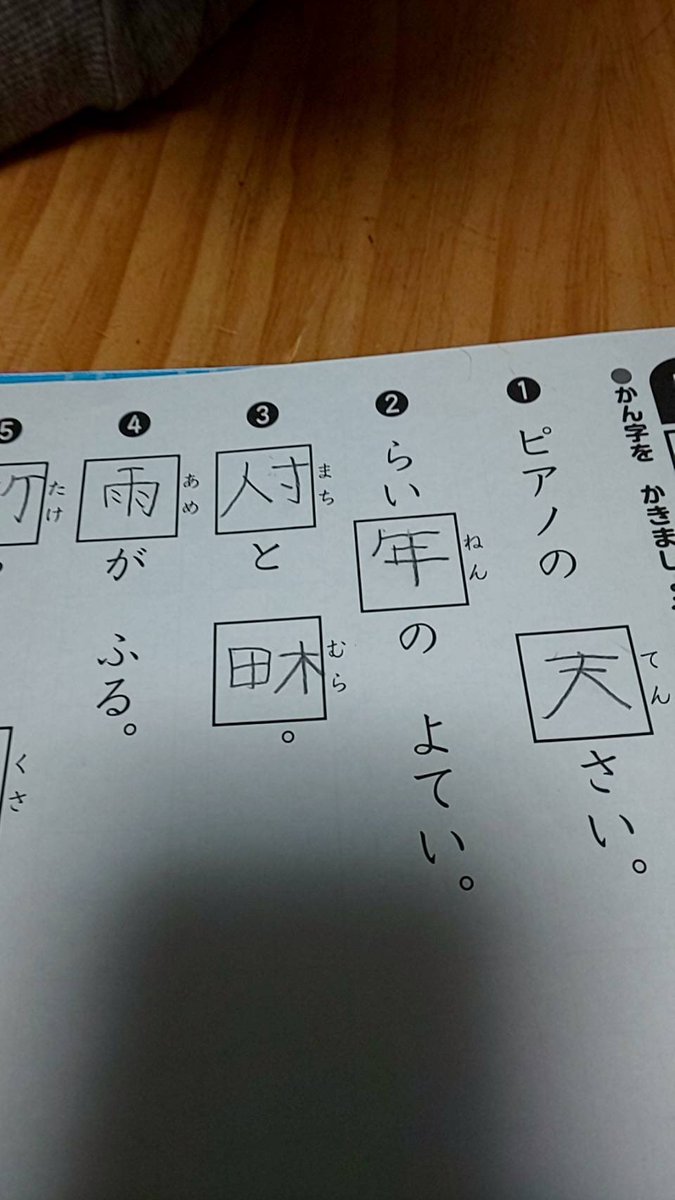 ●かん字を かきまし
❶ ピアノの 天さい。
てん
❷ らい年の よてい。
ねん
❸ 人寸と 田木。
まち
むら
❹ 雨が ふる。
あめ
5
たけ
くさ